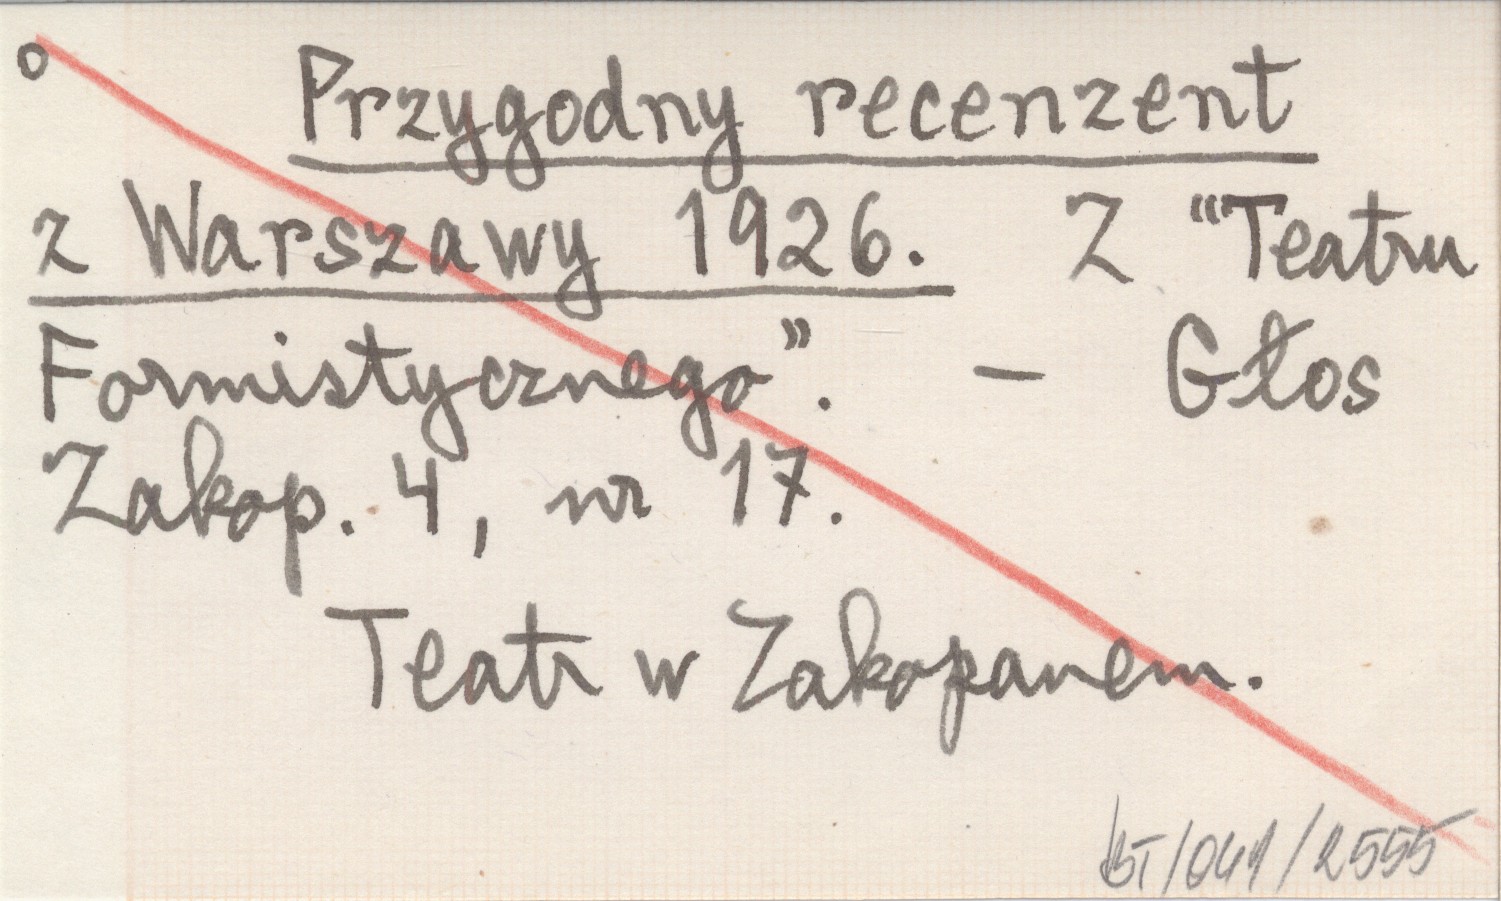 o
Przygodny recenzent
z Warszawy 1926. Z “Teatru
Formistycznego”. — Głos
Zakop. 4, nr 17.
Teatr w Zakopanem.
BT/041/2555